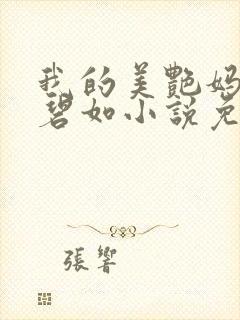 我的美艷媽
碧如小說免
張響